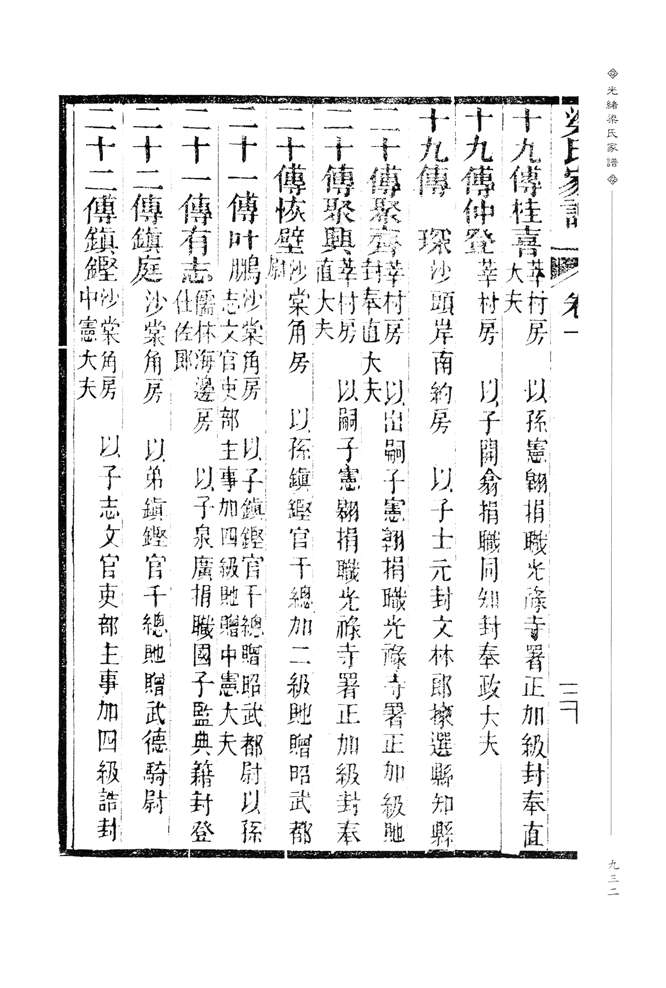 光緒梁氏家譜
九三二
梁氏家譜 卷一 二十
十九傳桂喜 莘村房 以孫憲翱捐職光祿寺署正加級封奉直
大夫
十九傳仲登 莘村房 以子開翕捐職同知封奉政大夫
十九傳 琛 沙頭岸南約房 以子士元封文林郎揀選縣知縣
二十傳聚齊 莘村房 以出嗣子憲翱捐職光祿寺署正加級貤
封奉直大夫
二十傳聚興 莘村房 以嗣子憲翱捐職光祿寺署正加級封奉
直大夫
二十傳恢壁 沙棠角房 以孫鎮鏗官千總加二級貤贈昭武都
尉
二十一傳叶鵬 沙棠角房 以子鎮鏗官千總贈昭武都尉以孫
志文官吏部主事加四級貤贈中憲大夫
二十一傳有志 儒林海邊房 以子泉廣捐職國子監典籍封登
仕佐郎
二十二傳鎮庭 沙棠角房 以弟鎮鏗官千總貤贈武德騎尉
二十二傳鎮鏗 沙棠角房 以子志文官吏部主事加四級誥封
中憲大夫